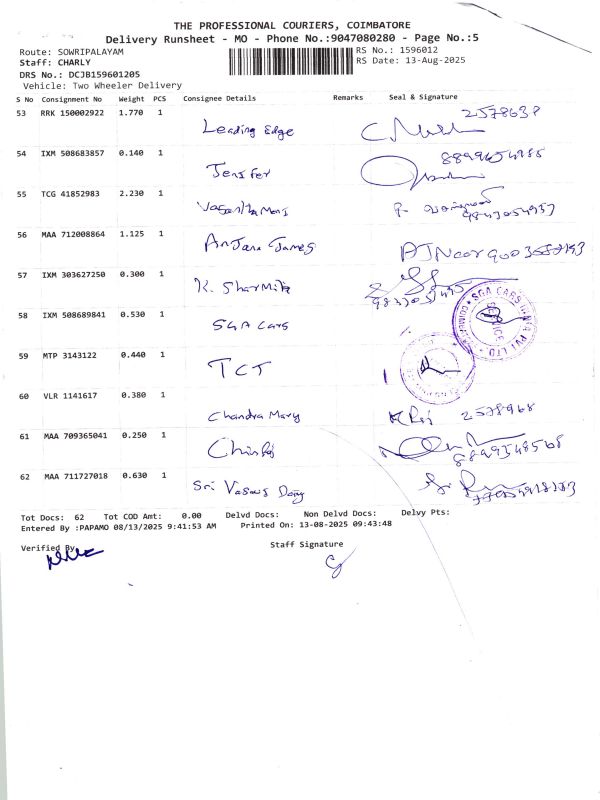 THE PROFESSIONAL COURIERS, COIMBATORE
Delivery Runsheet - MO - Phone No.:9047080280 - Page No.:5
Route: SOWRIPALAYAM
RS No.: 1596012
Staff: CHARLY
RS Date: 13-Aug-2025
DRS No.: DCJB159601205
Vehicle: Two Wheeler Delivery
S No Consignment No Weight PCS Consignee Details Remarks Seal & Signature
53 RRK 150002922 1.770 1 Leading Edge 2578638
54 IXM 508683857 0.140 1 Jenifer
55 TCG 41852983 2.230 1
56 MAA 712008864 1.125 1 Anjana James
57 IXM 303627250 0.300 1 K. Sharmila
58 IXM 508689841 0.530 1 SGA Cars
SGA CARS INDIA PVT LTD
59 MTP 3143122 0.440 1 TCT
60 VLR 1141617 0.380 1 Chandra Mary 2578968
61 MAA 709365041 0.250 1
62 MAA 711727018 0.630 1 Sri
Tot Docs: 62 Tot COD Amt: 0.00 Delvd Docs: Non Delvd Docs: Delvy Pts:
Entered By :PAPAMO 08/13/2025 9:41:53 AM Printed On: 13-08-2025 09:43:48
Verified By
Staff Signature